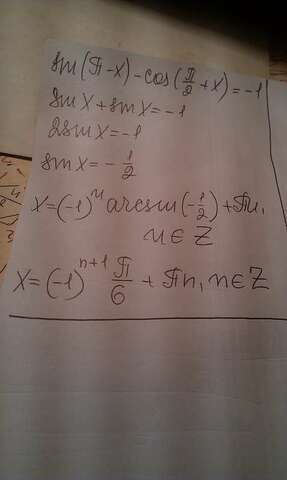 sin(π-x)-cos(π/2+x)=-1
sin x+sin x=-1
2sin x=-1
sin x=-1/2
x=(-1)ⁿ arcsin(-1/2)+πn,
n∈Z
x=(-1)ⁿ⁺¹ π/6 + πn, n∈Z